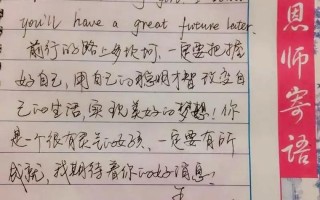 you'll have a great future later.
前行的路上多坎坷，一定要把握
好自己，用自己的聪明才智改变自
己的生活，实现美好的梦想！你
是一个很有灵气的女孩，一定要有所
成就，我期待着你的好消息！
恩师寄语